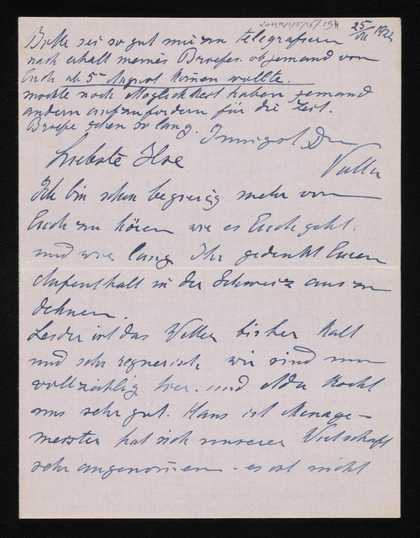 25/VII 1922
Bitte sei so gut mir zu telegrafieren
nach erhalt meines Briefes. ob jemand von
Euch ab 5ten August kommen wollte.
möchte nach Möglichkeit haben jemand
andern aufzufordern für die Zeit.
Briefe gehen so lang. Innigst Dein
Liebste Ilse Vater
Ich bin schon begierig mehr von
Euch zu hören wie es Euch geht.
und wie lang Ihr gedenkt Euren
Aufenthalt in der Schweiz auszu
dehnen.
Leider ist das Wetter bisher kalt
und sehr regnerisch, wir sind nun
vollzählig hier. und Ada kocht
uns sehr gut. Hans ist Menage-
meister hat sich unserer Wirtschaft
sehr angenommen. es ist nicht